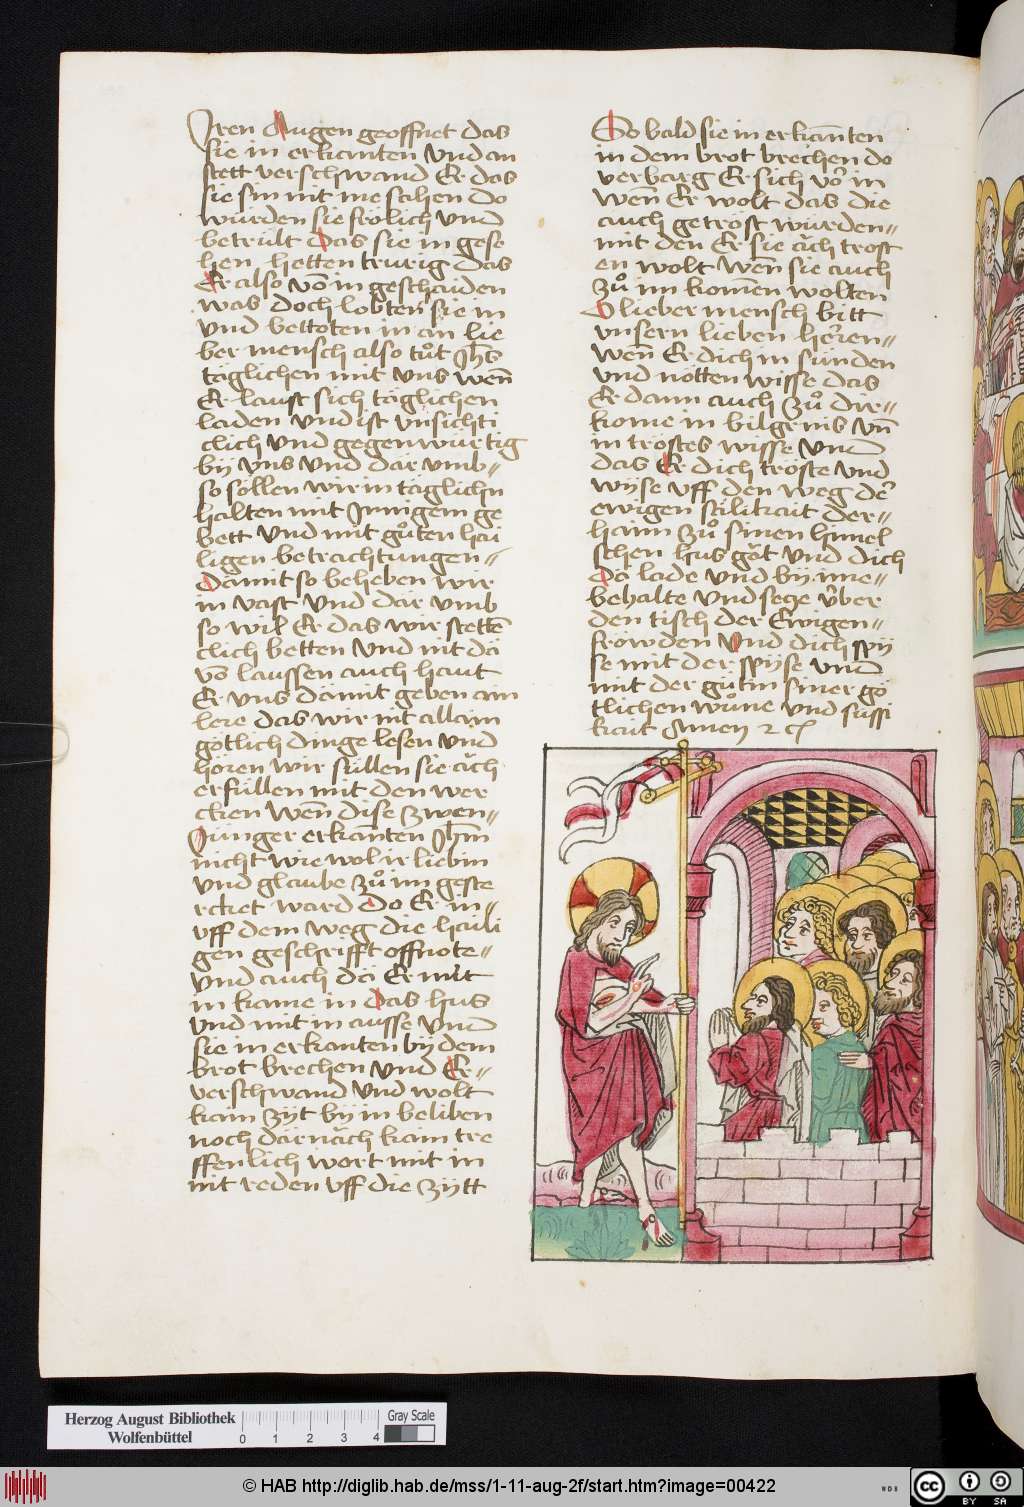 Iren Augen geoffnet das
sie in erkanten vnd an
stett verschwand Er das
sie sin nit me sahen do
wurden sie frölich vnd
betrübt Das sie in gese
hen hetten trurig das
Er also võ in geschaiden
was doch lobten sie in
vnd bettoten in an lie
ber mensch also tůt Jh̃s
täglichen mit vns wen̄
Er laust sich täglichen
laden vnd ist vnsichti
clich vnd gegenwürtig
bij vns vnd dar vmb
so söllen wir in täglichn
halten mit Innigem ge
bett vnd mit gůten hai
ligen betrachtungen
Damit so beheben wir
in vast vnd dar vmb
so wil Er das wir stettē
clich betten vnd nit då
võ laussen auch haut
Er vns damit geben ain
lere das wir nit allain
götlich dinge lesen vnd
hören wir süllen sie ăch
erfüllen mit den wer
cken wen̄ dise zwen
Jünger erkanten Jhm̄
nicht wie wol ir liebin
vnd glaube zů im geste
rcket ward do Er in
vff dem weg die haili
gen geschrifft offnote
vnd auch då Er mit
in kame in das hus
vnd mit in ausse vnd
sie in erkanten bij dem
brot brechen vnd Er
verschwand vnd wolt
kain zijt bij in beliben
noch dărnăch kain tre
ffenlich wort mit in
nit reden vff die zijtt
So bald sie in erkan̄ten
in dem brot brechen do
verbarg Er sich vor in
wen̄ Er wolt das die
auch getröst würden
mit den Er sie ăch tröst
en wolt wen̄ sie auch
zů im komen wolten
O lieber mensch bitt
vnsern lieben herren
wen̄ Er dich in sünden
vnd nötten wisse das
Er dann auch zů dir
kome in bilgrins vn̄
in tröstes wisse vnd
das Er dich tröste vnd
wijse vff den weg der
ewigen sälikait der
haim zů sinen himel
schen hus găt vnd dich
då lade vnd bij ime
behalte vnd secze vber
den tisch der Ewigen
fröwden vnd dich spij
se mit der spijse vnd
mit der gütin siner gö
tlichen wůne vnd süssi
kait Amen 2 cͭ
Herzog August Bibliothek
Wolfenbüttel
0 1 2 3 4
Gray Scale
© HAB http://diglib.hab.de/mss/1-11-aug-2f/start.htm?image=00422
WDB
cc BY SA